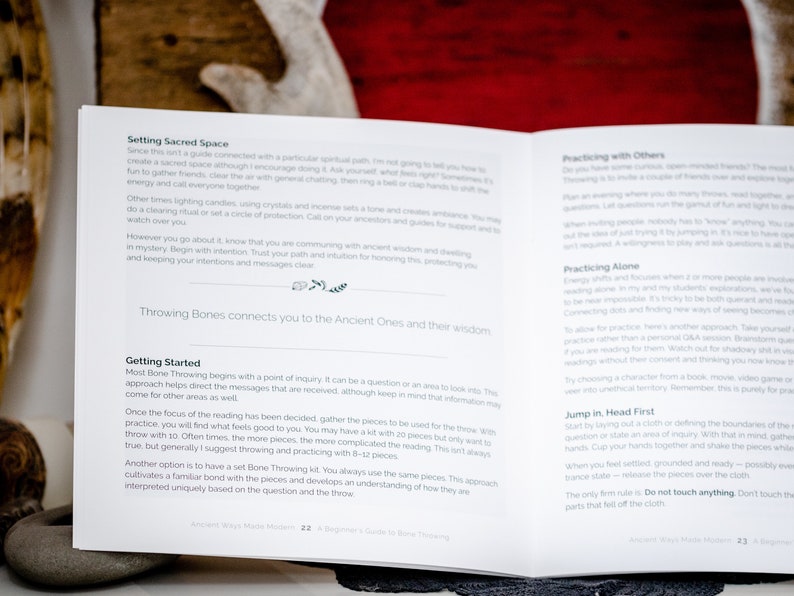 Setting Sacred Space
Since this isn't a guide connected with a particular spiritual path, I'm not going to tell you how to
create a sacred space although I encourage doing it. Ask yourself, what feels right? Sometimes it's
fun to gather friends, clear the air with general chatting, then ring a bell or clap hands to shift the
energy and call everyone together.
Other times lighting candles, using crystals and incense sets a tone and creates ambiance. You may
do a clearing ritual or set a circle of protection. Call on your ancestors and guides for support and to
watch over you.
However you go about it, know that you are communing with ancient wisdom and dwelling
in mystery. Begin with intention. Trust your path and intuition for honoring this, protecting you
and keeping your intentions and messages clear.
Throwing Bones connects you to the Ancient Ones and their wisdom.
Getting Started
Most Bone Throwing begins with a point of inquiry. It can be a question or an area to look into. This
approach helps direct the messages that are received, although keep in mind that information may
come for other areas as well.
Once the focus of the reading has been decided, gather the pieces to be used for the throw. With
practice, you will find what feels good to you. You may have a kit with 20 pieces but only want to
throw with 10. Often times, the more pieces, the more complicated the reading. This isn't always
true, but generally I suggest throwing and practicing with 8–12 pieces.
Another option is to have a set Bone Throwing kit. You always use the same pieces. This approach
cultivates a familiar bond with the pieces and develops an understanding of how they are
interpreted uniquely based on the question and the throw.
Ancient Ways Made Modern 22 A Beginner's Guide to Bone Throwing
Practicing with Others
Do you have some curious, open-minded friends? The most f
Throwing is to invite a couple of friends over and explore toge
Plan an evening where you do many throws, read together, an
questions. Let questions run the gamut of fun and light to dre
When inviting people, nobody has to "know" anything. You ca
out the idea of just trying it by jumping in. It's nice to have ope
isn't required. A willingness to play and ask questions is all th
Practicing Alone
Energy shifts and focuses when 2 or more people are involve
reading alone. In my and my students' explorations, we've fou
to be near impossible. It's tricky to be both querant and reade
Connecting dots and finding new ways of seeing becomes ch
To allow for practice, here's another approach. Take yourself o
practice rather than a personal Q&A session. Brainstorm que
if you are reading for them. Watch out for shadowy shit in vis
readings without their consent and thinking you now know th
Try choosing a character from a book, movie, video game or
veer into unethical territory. Remember, this is purely for prac
Jump in, Head First
Start by laying out a cloth or defining the boundaries of the r
question or state an area of inquiry. With that in mind, gather
hands. Cup your hands together and shake the pieces while
When you feel settled, grounded and ready — possibly eve
trance state — release the pieces over the cloth.
The only firm rule is: Do not touch anything. Don't touch the
parts that fell off the cloth.
Ancient Ways Made Modern 23 A Beginner'